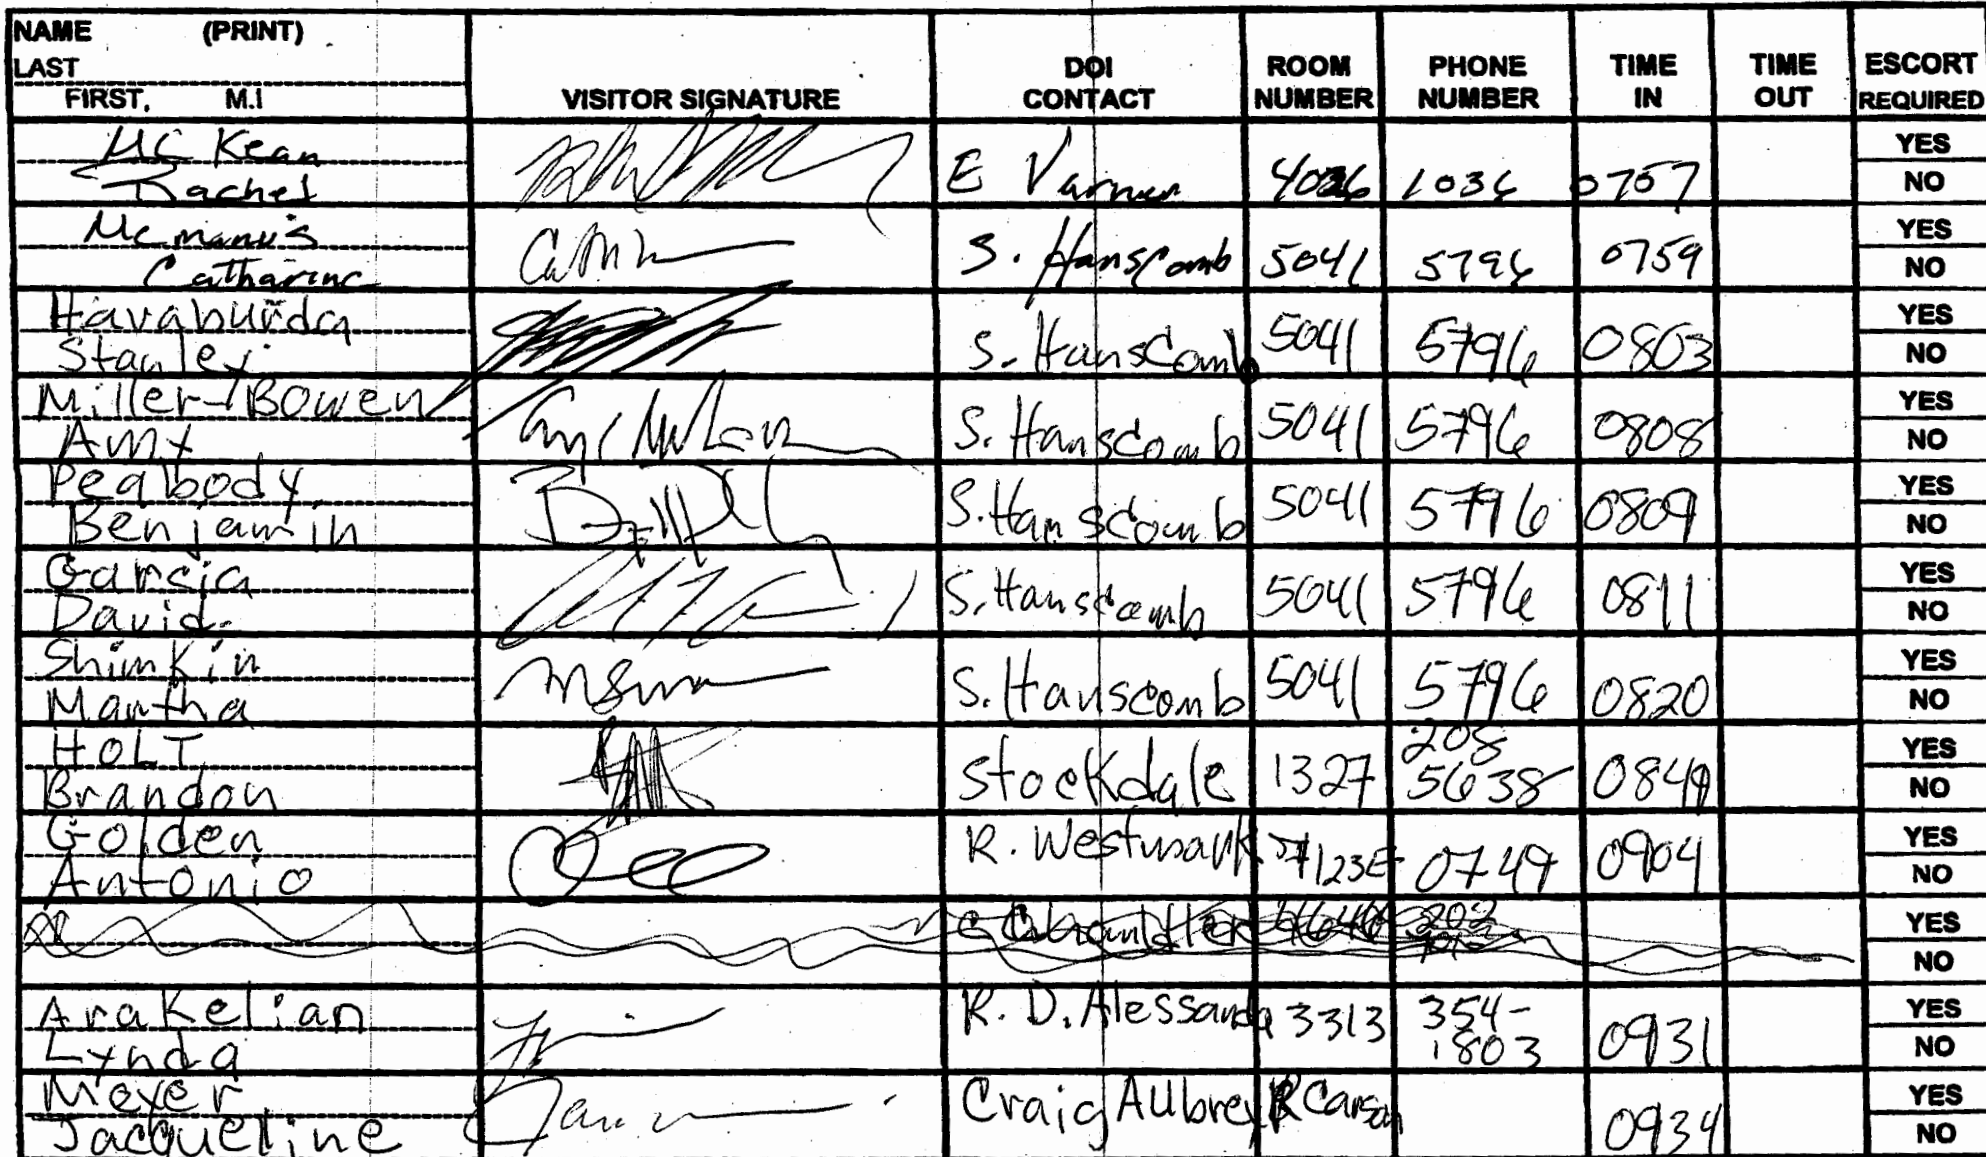 NAME (PRINT)
LAST
FIRST, M.I
VISITOR SIGNATURE
DOI CONTACT
ROOM NUMBER
PHONE NUMBER
TIME IN
TIME OUT
ESCORT REQUIRED
McKean
Rachel
E Varner 4026 1036 0757
YES
NO
Mcmanus
Catharine
S. Hanscomb 5041 5796 0759
YES
NO
Havaburda
Stanley
S. Hanscomb 5041 5796 0803
YES
NO
Miller-Bowen
Amy
S. Hanscomb 5041 5796 0808
YES
NO
Peabody
Benjamin
S. Hanscomb 5041 5796 0809
YES
NO
Garcia
David
S. Hanscomb 5041 5796 0811
YES
NO
Shimkin
Martha
S. Hanscomb 5041 5796 0820
YES
NO
HOLT
Brandon
Stockdale 1327 208 5638 0849
YES
NO
Golden
Antonio
R. 7123E 0749 0904
YES
NO
YES
NO
Arakelian
Lynda
R. D. Alessandr 3313 354-1803 0931
YES
NO
Meyer
Jacqueline
Craig Aubrey R Carson 0934
YES
NO